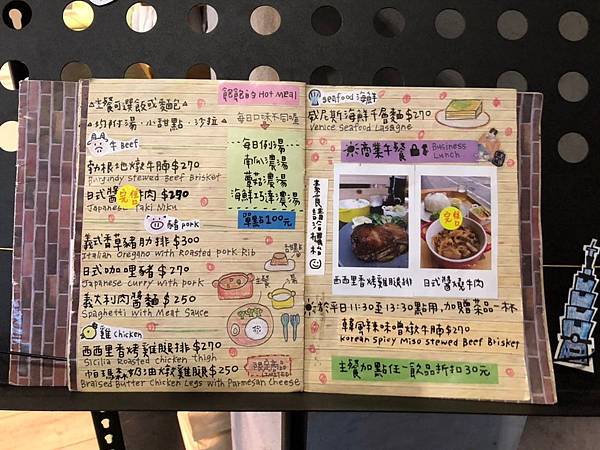 飽飽的 Hot Meal
△主餐可選飯或麵包
△均附湯．小甜點．沙拉
每日口味不同唷
牛 Beef
勃根地燉牛腩$270
Burgundy stewed Beef Brisket
日式醬 牛肉 $290
完售
Japanese Yaki Niku
豬 pork
義式香草豬肋排 $300
Italian Oregano with Roasted pork Rib
日式咖哩豬 $270
Japanese curry with pork
義大利肉醬麵 $250
Spaghetti with Meat Sauce
雞 chicken
西西里香烤雞腿排 $270
Sicilia Roasted chicken thigh
帕瑪森奶油燉雞腿$250
Braised Butter Chicken Legs with Parmesan Cheese
限定商品
LIMITED
每日例湯
南瓜濃湯
蘑菇濃湯
海鮮巧達濃湯
單點100元
甜點
主餐
湯
seafood 海鮮
威尼斯海鮮千層麵 $270
Venice Seafood Lasagne
商業午餐
Business
Lunch
素食請洽櫃檯
完售
西西里香烤雞腿排
日式醬燒牛肉
於平日11:30至13:30點用,加贈菜品一杯
韓風辣味噌燉牛腩$270
Korean Spicy Miso stewed Beef Brisket
主餐加點任一飲品折扣30元